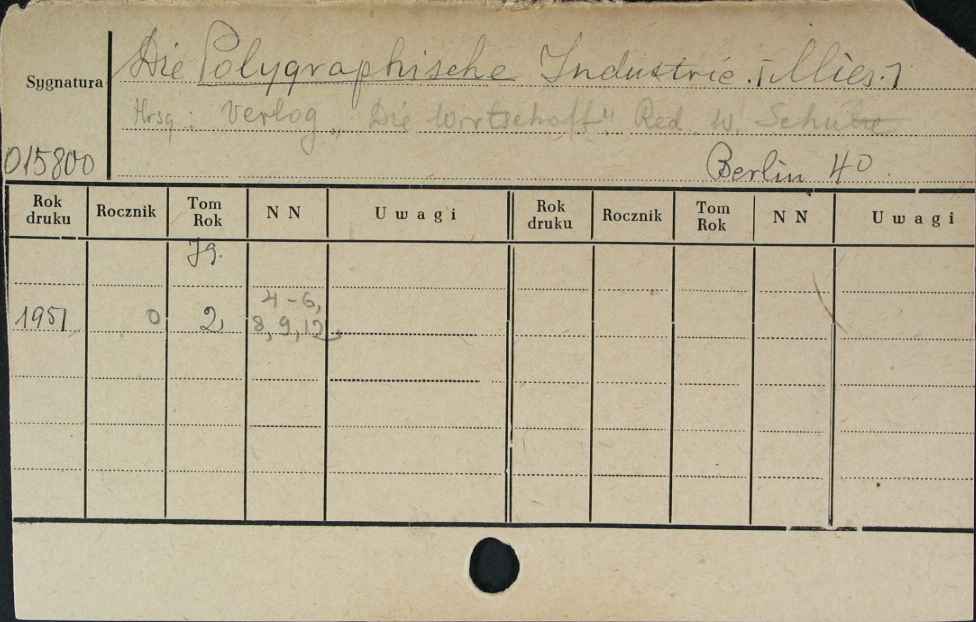 Die Polygraphische Industrie. [Mies.]
Sygnatura
Hrsg: Verlag „Die Wirtschaft" Red. W. Schulze
015800
Berlin 4°
Rok druku Rocznik Tom Rok N N Uwagi Rok druku Rocznik Tom Rok N N Uwagi
Jg.
4-6,
1951 0 2, 8, 9, 12,